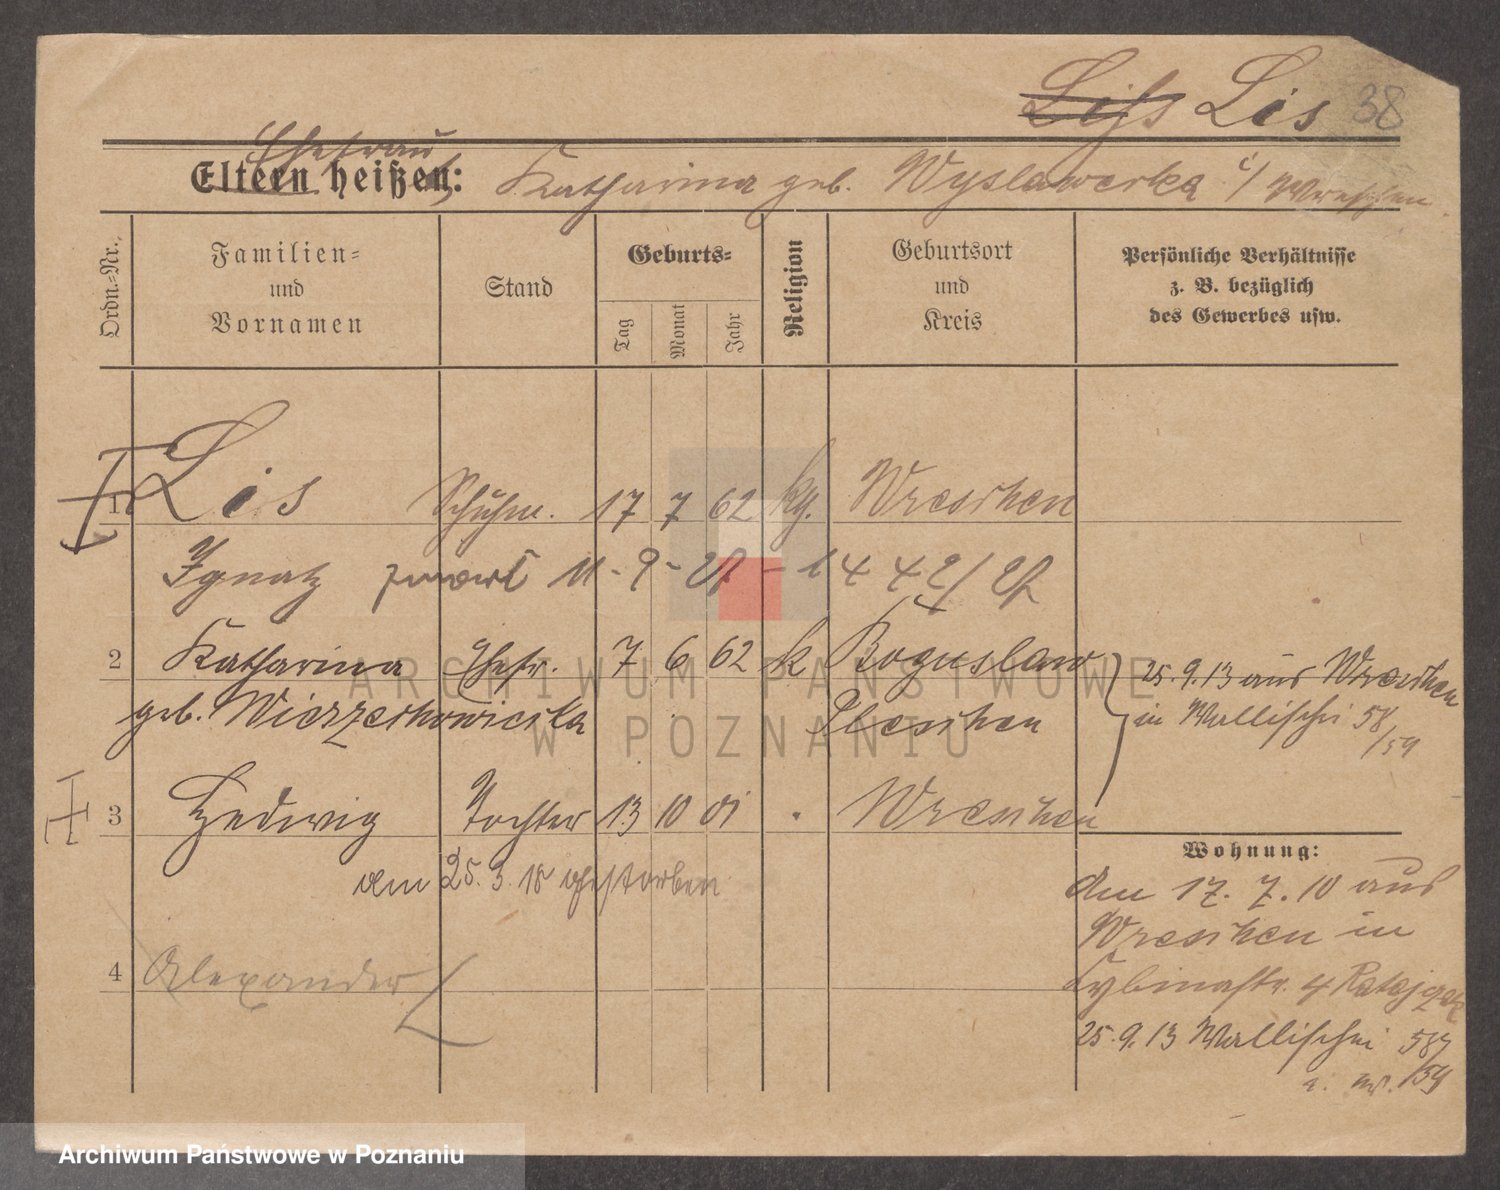 Liss Lis 38
Ehefrau
Eltern heißen: Katharina geb. Wyslawerka i/ Wreschen
Ordn.=Nr.
Familien=
und
Vornamen
Stand
Geburts=
Tag
Monat
Jahr
Religion
Geburtsort
und
Kreis
Persönliche Verhältnisse
z. B. bezüglich
des Gewerbes usw.
1 Lis Schuhm. 17 7 62 kg. Wreschen
Ignatz 11-9-
2 Katharina Ehefr. 7 6 62 k Boguslaw
geb. Wierzchowicska Pleschen
25.9.13 aus Wreschen
in Wallischei 58
/59
3 Hedwig Tochter 13 10 01 Wreschen
am 25.3.18 gestorben
4 Alexander L
Wohnung:
am 17.7.10 aus
Wreschen in
Cybinastr. 4 Ratajczak
25.9.13 Wallischei 58/
/59
ARCHIWUM PAŃSTWOWE
W POZNANIU
Archiwum Państwowe w Poznaniu